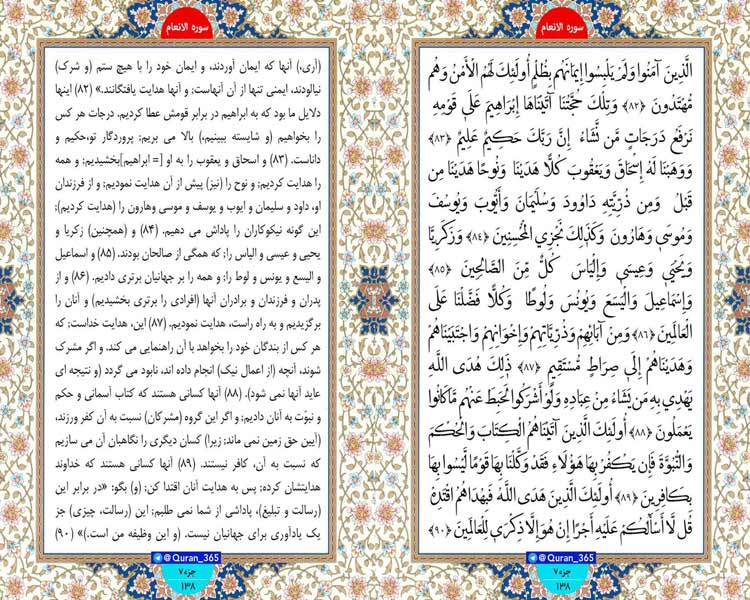 سوره الانعام
الَّذِينَ آمَنُوا وَلَمْ يَلْبِسُوا إِيمَانَهُم بِظُلْمٍ أُولَئِكَ لَهُمُ الْأَمْنُ وَهُم
مُّهْتَدُونَ ﴿۸۲﴾ وَتِلْكَ حُجَّتُنَا آتَيْنَاهَا إِبْرَاهِيمَ عَلَى قَوْمِهِ
نَرْفَعُ دَرَجَاتٍ مَّن نَّشَاءُ إِنَّ رَبَّكَ حَكِيمٌ عَلِيمٌ ﴿۸۳﴾
وَوَهَبْنَا لَهُ إِسْحَاقَ وَيَعْقُوبَ كُلًّا هَدَيْنَا وَنُوحًا هَدَيْنَا مِن
قَبْلُ وَمِن ذُرِّيَّتِهِ دَاوُودَ وَسُلَيْمَانَ وَأَيُّوبَ وَيُوسُفَ
وَمُوسَى وَهَارُونَ وَكَذَلِكَ نَجْزِي الْمُحْسِنِينَ ﴿۸۴﴾ وَزَكَرِيَّا
وَيَحْيَى وَعِيسَى وَإِلْيَاسَ كُلٌّ مِّنَ الصَّالِحِينَ ﴿۸۵﴾
وَإِسْمَاعِيلَ وَالْيَسَعَ وَيُونُسَ وَلُوطًا وَكُلًّا فَضَّلْنَا عَلَى
الْعَالَمِينَ ﴿۸۶﴾ وَمِنْ آبَائِهِمْ وَذُرِّيَّاتِهِمْ وَإِخْوَانِهِمْ وَاجْتَبَيْنَاهُمْ
وَهَدَيْنَاهُمْ إِلَى صِرَاطٍ مُّسْتَقِيمٍ ﴿۸۷﴾ ذَلِكَ هُدَى اللَّهِ
يَهْدِي بِهِ مَن يَشَاءُ مِنْ عِبَادِهِ وَلَوْ أَشْرَكُوا لَحَبِطَ عَنْهُم مَّا كَانُوا
يَعْمَلُونَ ﴿۸۸﴾ أُولَئِكَ الَّذِينَ آتَيْنَاهُمُ الْكِتَابَ وَالْحُكْمَ
وَالنُّبُوَّةَ فَإِن يَكْفُرْ بِهَا هَؤُلَاءِ فَقَدْ وَكَّلْنَا بِهَا قَوْمًا لَّيْسُوا بِهَا
بِكَافِرِينَ ﴿۸۹﴾ أُولَئِكَ الَّذِينَ هَدَى اللَّهُ فَبِهُدَاهُمُ اقْتَدِهْ
قُل لَّا أَسْأَلُكُمْ عَلَيْهِ أَجْرًا إِنْ هُوَ إِلَّا ذِكْرَى لِلْعَالَمِينَ ﴿۹۰﴾
@Quran_365
جزء۷
۱۳۸
سوره الانعام
(آری،) آنها که ایمان آوردند، و ایمان خود را با هیچ ستم (و شرک)
نیالودند، ایمنی تنها از آن آنهاست؛ و آنها هدایت یافتگانند.» (۸۲) اینها
دلایل ما بود که به ابراهیم در برابر قومش عطا کردیم. درجات هر کس
را بخواهیم (و شایسته ببینیم،) بالا می بریم؛ پروردگار تو،حکیم و
داناست. (۸۳) و اسحاق و یعقوب را به او [= ابراهیم]بخشیدیم؛ و همه
را هدایت کردیم؛ و نوح را (نیز) پیش از آن هدایت نمودیم؛ و از فرزندان
او، داود و سلیمان و ایوب و یوسف و موسی وهارون را (هدایت کردیم)؛
این گونه نیکوکاران را پاداش می دهیم. (۸۴) و (همچنین) زکریا و
یحیی و عیسی و الیاس را؛ که همگی از صالحان بودند. (۸۵) و اسماعیل
و الیسع و یونس و لوط را؛ و همه را بر جهانیان برتری دادیم. (۸۶) و از
پدران و فرزندان و برادران آنها (افرادی را برتری بخشیدیم) و آنان را
برگزیدیم و به راه راست، هدایت نمودیم. (۸۷) این، هدایت خداست؛ که
هر کس از بندگان خود را بخواهد با آن راهنمایی می کند. و اگر مشرک
شوند، آنچه (از اعمال نیک) انجام داده اند، نابود می گردد (و نتیجه ای
عاید آنها نمی شود). (۸۸) آنها کسانی هستند که کتاب آسمانی و حکم
و نبوّت به آنان دادیم؛ و اگر این گروه (مشرکان) نسبت به آن کفر ورزند،
(آیین حق زمین نمی ماند: زیرا) کسان دیگری را نگاهبان آن می سازیم
که نسبت به آن، کافر نیستند. (۸۹) آنها کسانی هستند که خداوند
هدایتشان کرده؛ پس به هدایت آنان اقتدا کن؛ (و) بگو: «در برابر این
(رسالت و تبلیغ)، پاداشی از شما نمی طلبم؛ این (رسالت، چیزی) جز
یک یادآوری برای جهانیان نیست. (و این وظیفه من است.)» (۹۰)
@Quran_365
جزء۷
۱۳۸